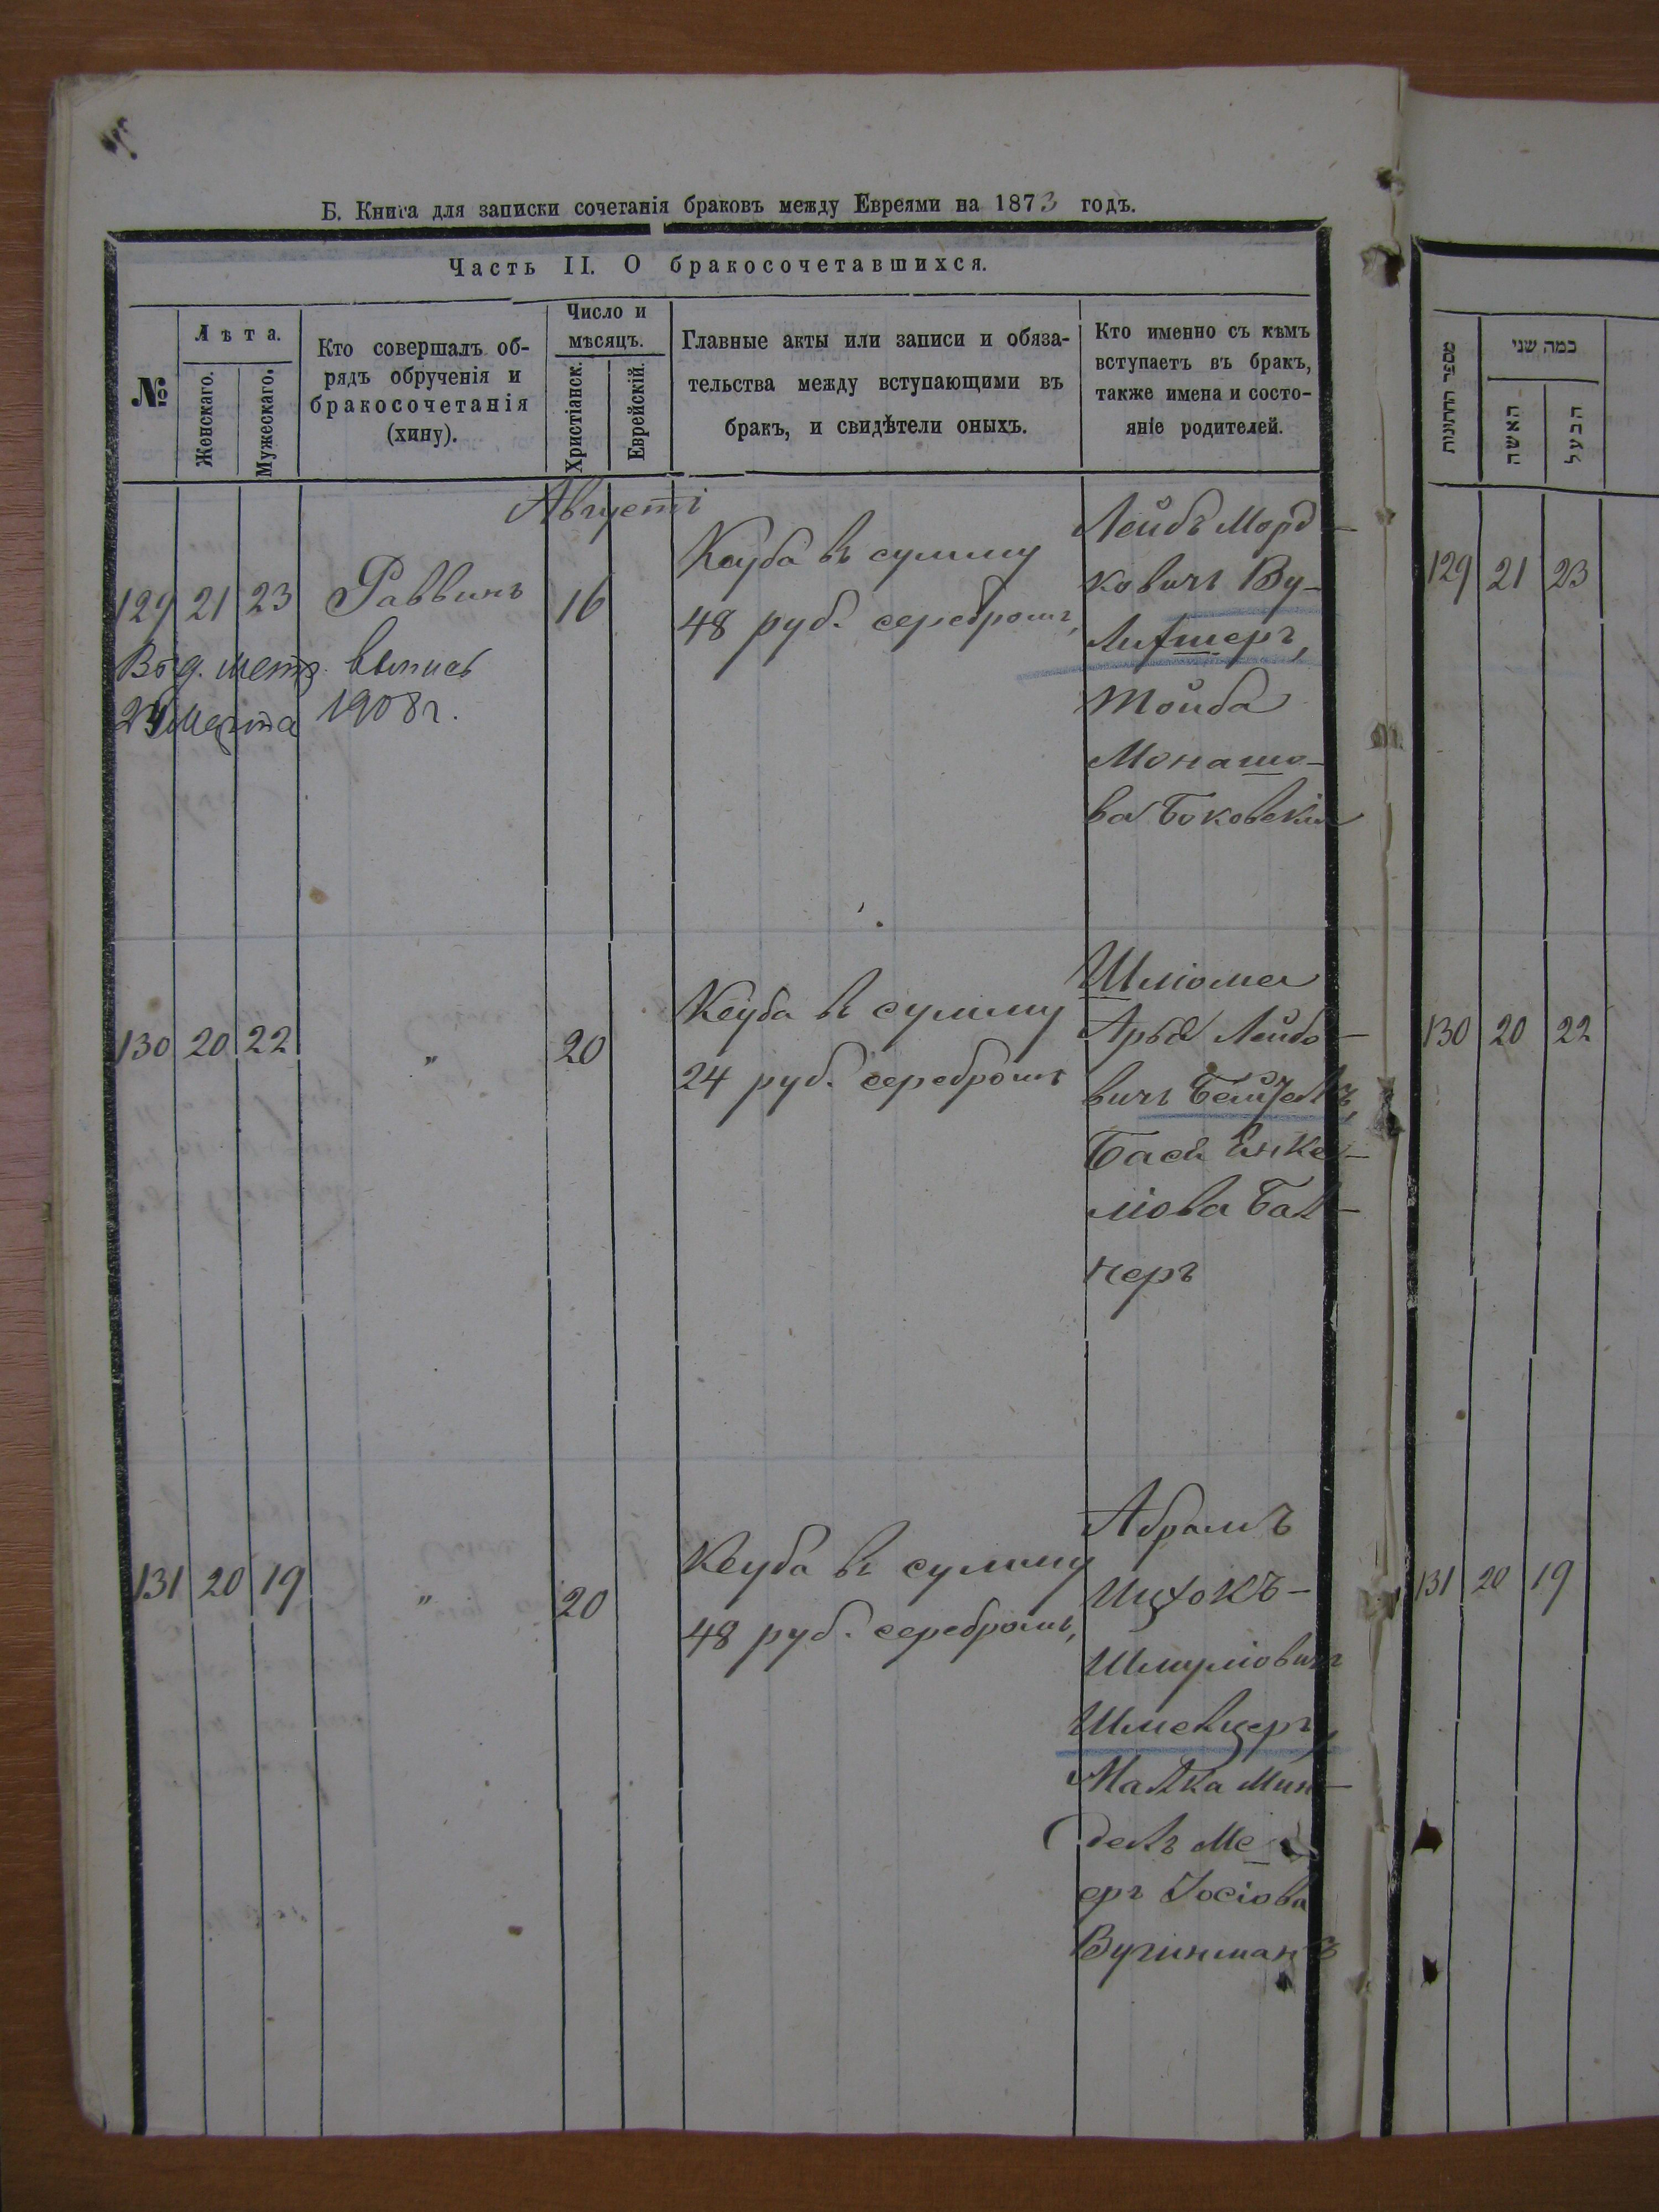 Б. Книга для записки сочетанія браковъ между Евреями на 1873 годъ.
Часть II. О бракосочетавшихся.
№
Лѣта.
Женскаго.
Мужескаго.
Кто совершалъ об-
рядъ обрученія и
бракосочетанія
(хину).
Число и
мѣсяцъ.
Христіанск.
Еврейскій.
Главные акты или записи и обяза-
тельства между вступающими въ
бракъ, и свидѣтели оныхъ.
Кто именно съ кѣмъ
вступаетъ въ бракъ,
также имена и состо-
яніе родителей.
Августъ
129 21 23 Раввинъ 16
Кеуба въ сумму
48 руб. серебромъ,
Лейбъ Морд-
ковичъ Ву-
Тойба
Монашо-
ва Боковскія
Выд. метр. выпись
24 марта 1908 г.
130 20 22 " 20
Кеуба въ сумму
24 руб. серебромъ
Шліома
Арья Лейбо-
вичъ
Бася Янке-
ліова Бал-
черъ
131 20 19 " 20
Кеуба въ сумму
48 руб. серебромъ,
Абрамъ
Ицхокъ-
Шмуліовичъ
Шмельцеръ,
Малка Мин-
дель Ме-
еръ Іосіова
Вугинманъ
מספר החתונות
כמה שני
האשה
הבעל
129 21 23
130 20 22
131 20 19